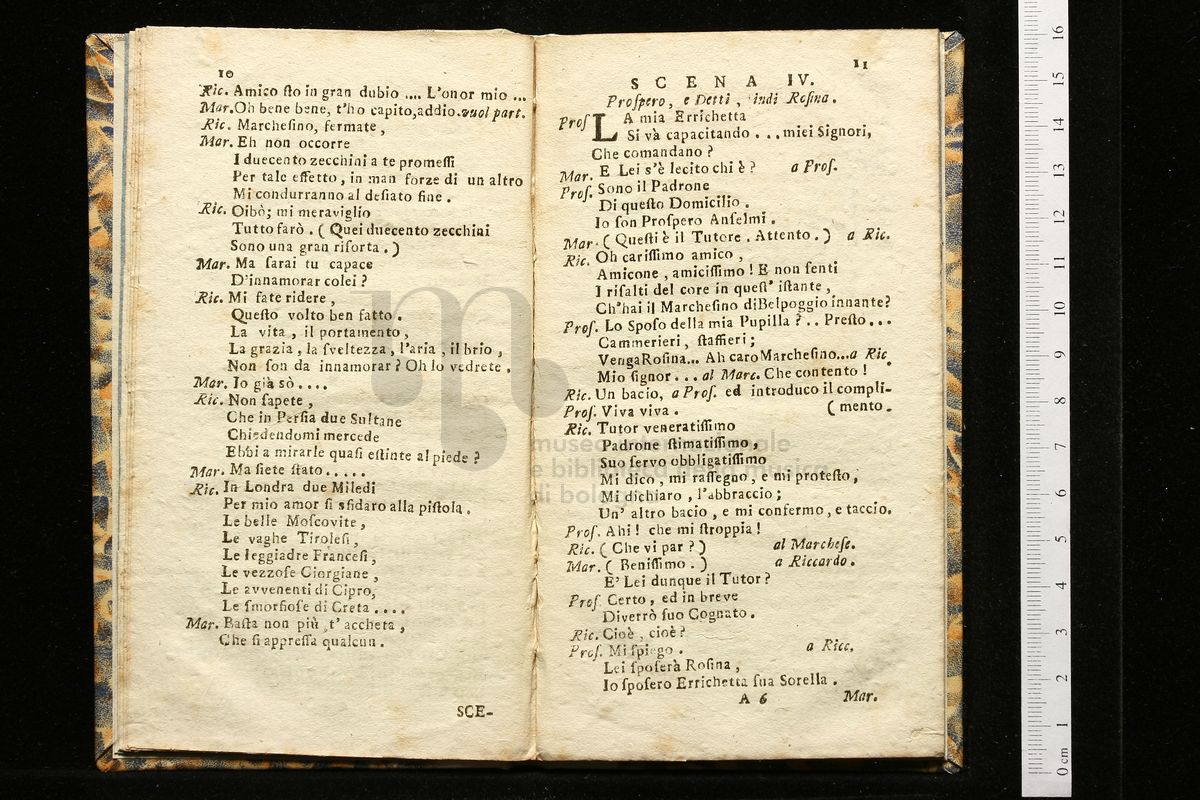 10
Ric. Amico ſto in gran dubio .... L'onor mio ...
Mar. Oh bene bene, t'ho capito, addio. vuol part.
Ric. Marcheſino, fermate,
Mar. Eh non occorre
I duecento zecchini a te promeſſi
Per tale effetto, in man forze di un altro
Mi condurranno al deſiato fine.
Ric. Oibò; mi meraviglio
Tutto farò. ( Quei duecento zecchini
Sono una gran riſorta. )
Mar. Ma ſarai tu capace
D'innamorar colei?
Ric. Mi fate ridere,
Queſto volto ben fatto.
La vita, il portamento,
La grazia, la ſveltezza, l'aria, il brio,
Non ſon da innamorar? Oh lo vedrete.
Mar. Io già sò....
Ric. Non ſapete,
Che in Perſia due Sultane
Chiedendomi mercede
Ebbi a mirarle quaſi eſtinte al piede?
Mar. Ma ſiete ſtato.....
Ric. In Londra due Miledi
Per mio amor ſi sfidaro alla piſtola.
Le belle Moſcovite,
Le vaghe Tiroleſi,
Le leggiadre Franceſi,
Le vezzoſe Giorgiane,
Le avvenenti di Cipro,
Le ſmorfioſe di Creta ....
Mar. Baſta non più, t'accheta,
Che ſi appreſſa qualcun.
SCE-
11
SCENA IV.
Proſpero, e Detti, indi Roſina.
Proſ LA mia Errichetta
Si và capacitando ... miei Signori,
Che comandano?
Mar. E Lei s'è lecito chi è? a Proſ.
Proſ. Sono il Padrone
Di queſto Domicilio.
Io ſon Proſpero Anſelmi.
Mar. ( Queſti è il Tutore. Attento. ) a Ric.
Ric. Oh cariſſimo amico,
Amicone, amiciſſimo! E non ſenti
I riſalti del core in queſt' iſtante,
Ch'hai il Marcheſino di Belpoggio innante?
Proſ. Lo Spoſo della mia Pupilla? .. Preſto...
Cammerieri, ſtaffieri;
Venga Roſina... Ah caro Marcheſino...a Ric.
Mio ſignor ... al Marc. Che contento!
Ric. Un bacio, a Proſ. ed introduco il compli-
Proſ. Viva viva. ( mento.
Ric. Tutor veneratiſſimo
Padrone ſtimatiſſimo,
Suo ſervo obbligatiſſimo
Mi dico, mi raſſegno, e mi proteſto,
Mi dichiaro, l'abbraccio;
Un' altro bacio, e mi confermo, e taccio.
Proſ. Ahi! che mi ſtroppia!
Ric. ( Che vi par? ) al Marcheſe.
Mar. ( Beniſſimo. ) a Riccardo.
E' Lei dunque il Tutor?
Proſ. Certo, ed in breve
Diverrò ſuo Cognato.
Ric. Cioè, cioè?
Proſ. Mi ſpiego. a Ricc.
Lei ſpoſerà Roſina,
Io ſpoſero Errichetta ſua Sorella.
A 6 Mar.
museo internazionale
e biblioteca della musica
di bologna
16
15
14
13
12
11
10
9
8
7
6
5
4
3
2
1
0 cm